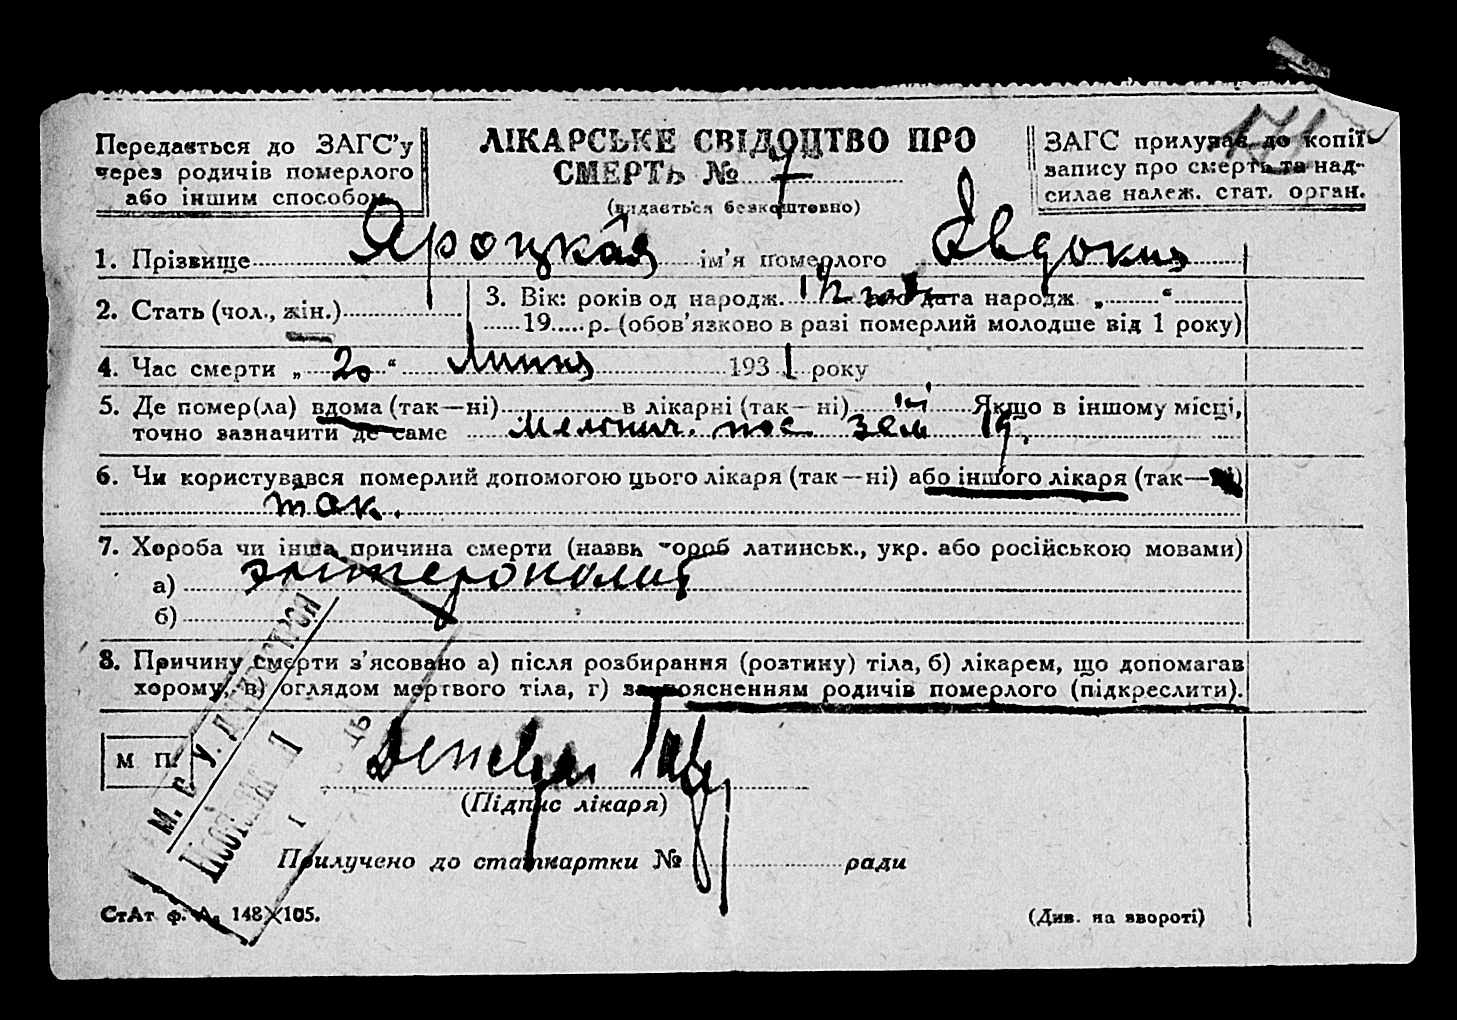 171
Передається до ЗАГС'у
через родичів померлого
або іншим способом
ЛІКАРСЬКЕ СВІДОЦТВО ПРО
СМЕРТЬ № 7
(видається безкоштовно)
ЗАГС прилучає до копії
запису про смерть та над-
силає належ. стат. орган.
1. Прізвище Яроцкая ім'я померлого Евдокия
2. Стать (чол., жін.)
3. Вік: років од народж. 1½ або дата народж. „ “
19 р. (обов'язково в разі померлий молодше від 1 року)
4. Час смерти „ 20 “ Липня 193 1 року
5. Де помер(ла) вдома (так—ні) в лікарні (так—ні) Якщо в іншому місці,
точно зазначити де саме пос. 19.
6. Чи користувався померлий допомогою цього лікаря (так—ні) або іншого лікаря (так—ні)
так.
7. Хороба чи інша причина смерти (назви хороб латинськ., укр. або російською мовами)
а) энтероколит
б)
8. Причину смерти з'ясовано а) після розбирання (розтину) тіла, б) лікарем, що допомагав
хорому, в) оглядом мертвого тіла, г) за поясненням родичів померлого (підкреслити).
М П.
(Підпис лікаря)
Прилучено до статкартки № ради
СтАт ф. А. 148×105.
(Див. на звороті)